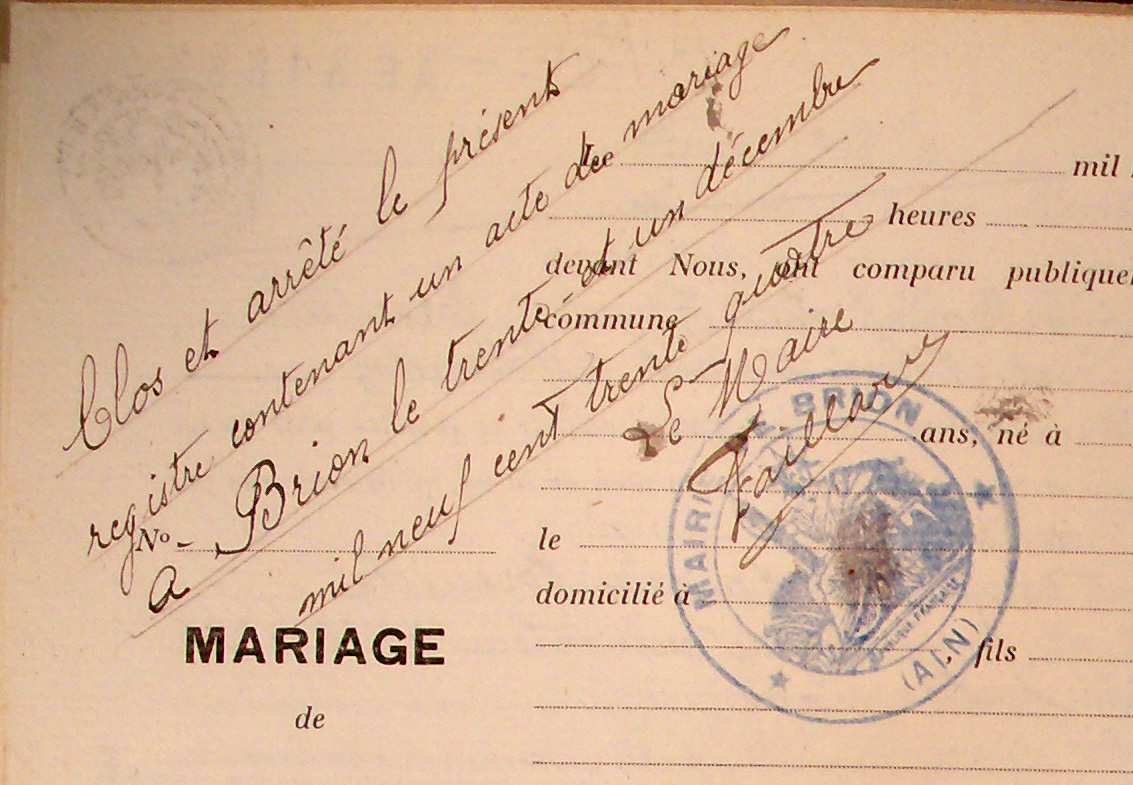 Clos et arrêté le présent
registre contenant un acte de mariage
a Brion le trente et un décembre
mil neuf cent trente quatre
Le Maire
mil
heures
devant Nous, ont comparu publique
commune
ans, né à
No
le
domicilié à
fils
MARIAGE
de
MAIRIE BRION
(AIN)